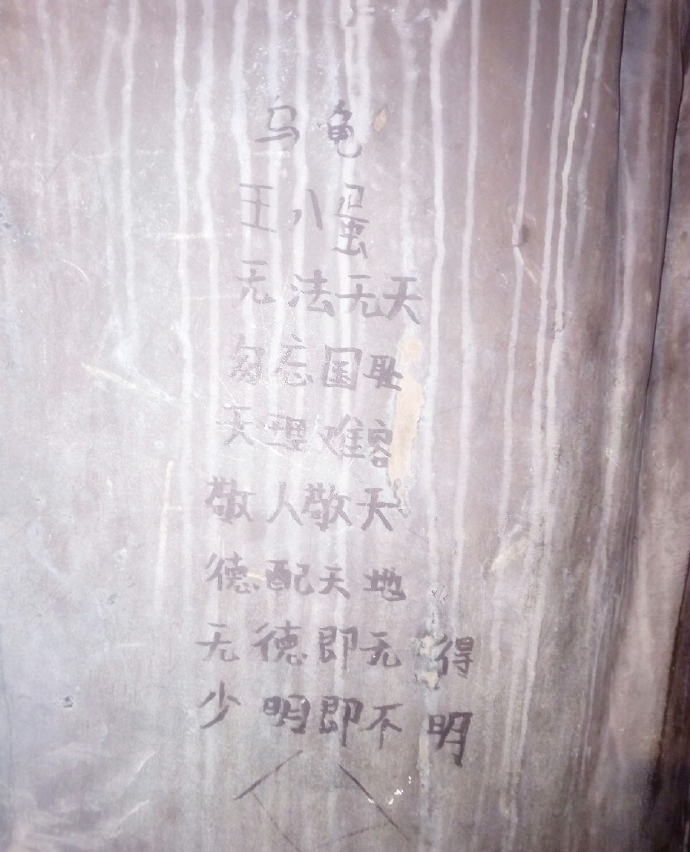 乌龟
王八蛋
无法无天
勿忘国耻
天理难容
敬人敬天
德配天地
无德即无得
少明即不明